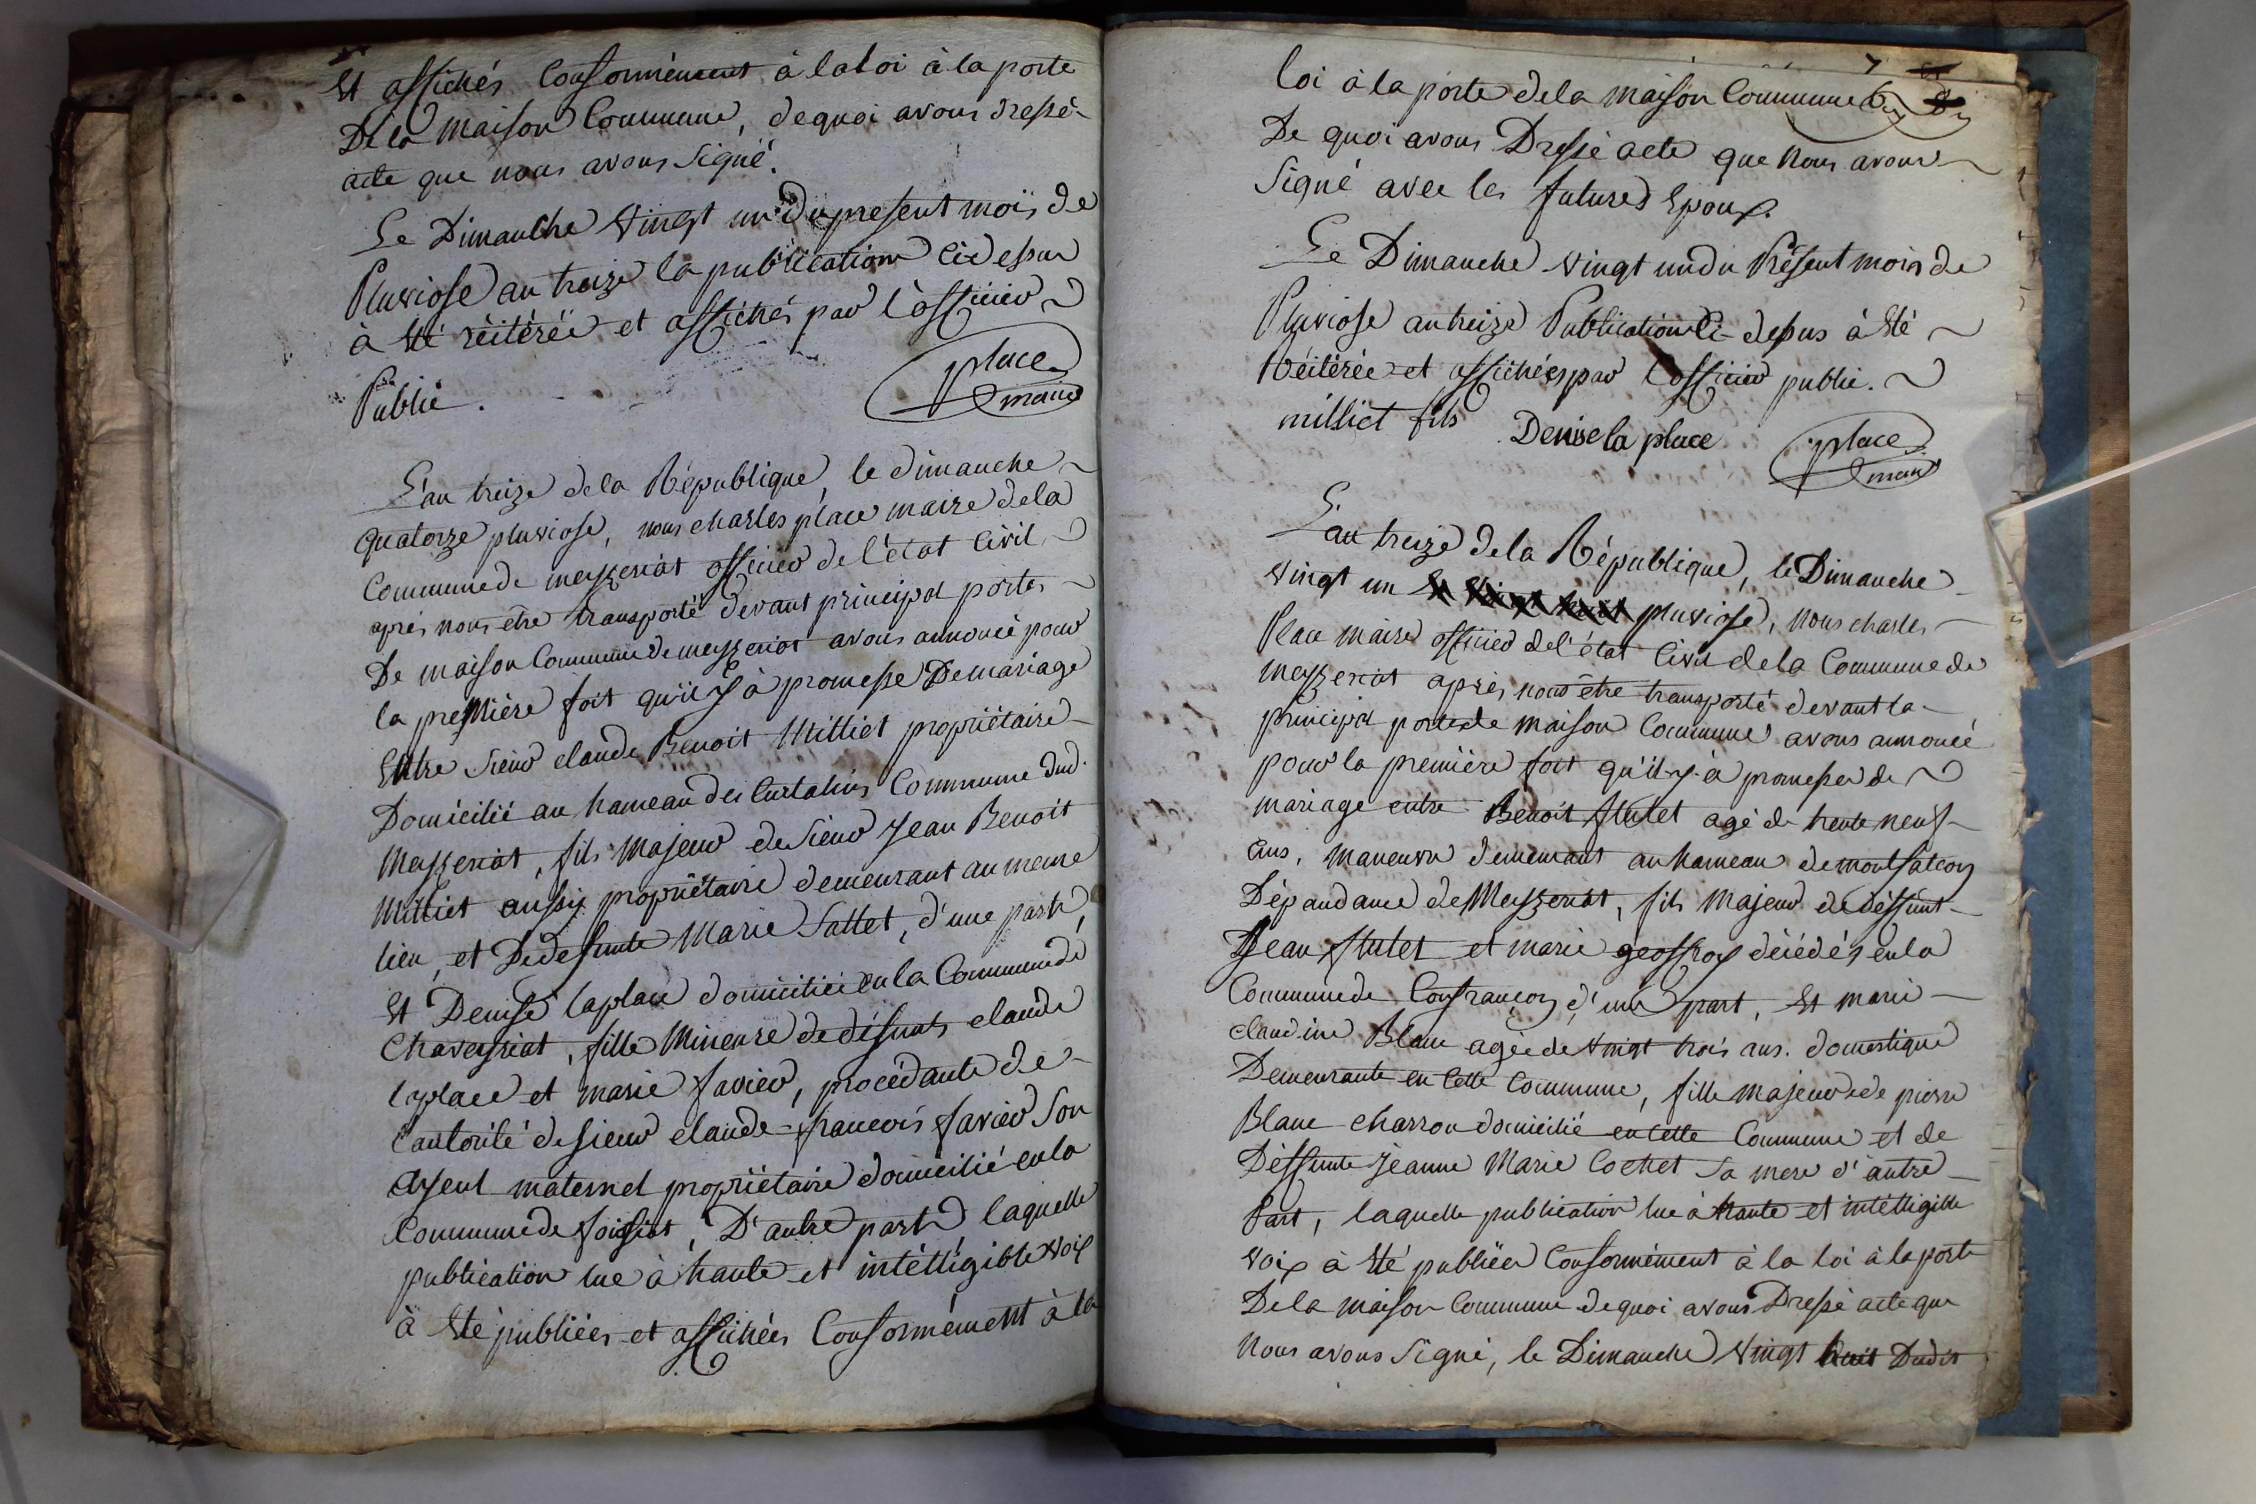 Et affichés Conformément à la Loi à la porte
De la maison Commune, dequoi avons dressé
acte que nous avons Signé.
Le Dimanche Vingt un du present mois de
Pluviose an treize la publication Ci dessus
à Eté réitérée et affichés par l'officier
Public.
place
maire
L'an treize de la République, le dimanche
quatorze pluviose, nous charles place maire de la
Commune de meyzeriat officier de l'état Civil
après nous être transporté devant principal porte
De maison Commune de meyzeriat avons annoncé pour
la première foit qu'il y à promesse De mariage
Entre Sieur claude Benoit Milliet propriétaire
Domicilié au hameau des Curtalins Commune dud.
Meyzeriat, fils majeur de Sieur Jean Benoit
Milliet aussy propriétaire demeurant au meme
lieu, et De defunte Marie Sallet, d'une part,
Et Denise laplace domiciliée en la Commune de
Chaveyriat, fille Mineure de défunts claude
laplace et marie favier, procédante de
l'autorité de Sieur claude-françois favier Son
Ayeul maternel propriétaire domicilié en la
Commune de foissiat, D'autre part, laquelle
publication lue à haute et intélligible voix
à Eté publiées et affichées Conformément à la
7
loi à la porte de la maison Commune
De quoi avons Dressé acte que Nous avons
Signé avec les futures Epoux.
Le Dimanche Vingt un du Présent mois de
Pluviose an treize Publication Ci-dessus à Eté
Réitérée et affichées par l'officier public.
milliet fils Denise la place place
maire
L'an treize de la République, le Dimanche
Vingt un pluviose, Nous charles
Place maire officier de l'état Civil de la Commune de
meyzeriat après nous être transporté devant la
principal porte de maison Commune avons annoncé
pour la première foit qu'il y à promesse de
mariage entre Benoit flutet agé de trente neuf
ans, maneuvre demeurant au hameau de montfalcon
Dépandance de Meyzeriat, fils Majeur de déffunt
Jean flutet et marie geoffroy décédés en la
Commune de Confrançon d'une part, Et marie
claudine Blanc agée de Vingt trois ans. domestique
Demeurante en Cette Commune, fille majeur de pierre
Blanc charron domicilié en Cette Commune et de
Déffunte Jeanne Marie Cochet Sa mere d'autre
Part, laquelle publication lue à haute et intélligible
voix à Eté publiée Conformément à la loi à la porte
De la maison Commune dequoi avons Dressé acte que
Nous avons Signé, le Dimanche Vingt huit Dudit